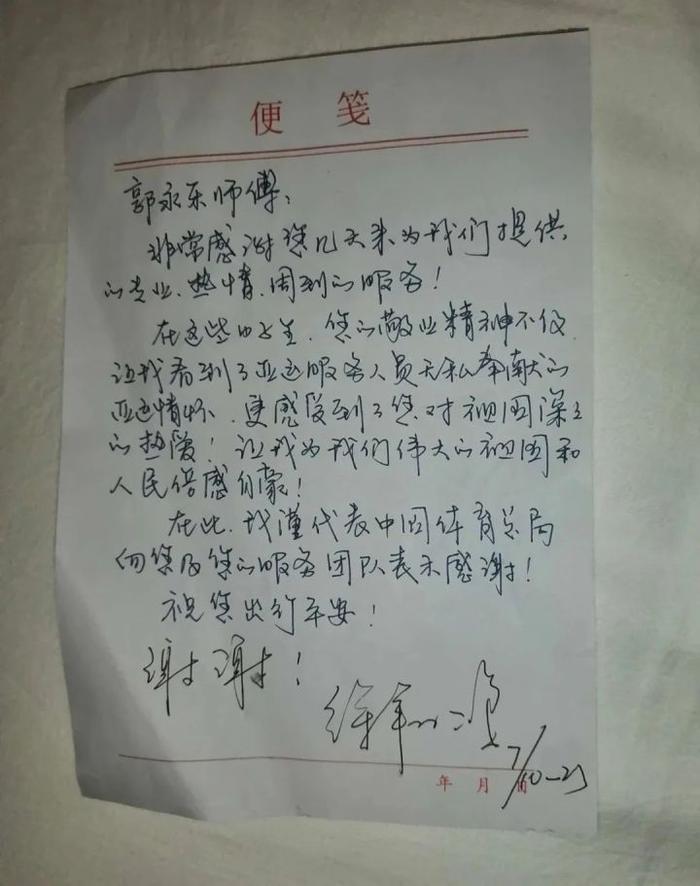 便 笺
郭永乐师傅:
非常感谢您几天来为我们提供
的专业、热情、周到的服务!
在这些日子里,您的敬业精神不仅
让我看到了亚运服务人员无私奉献的
亚运情怀,更感受到了您对祖国深深
的热爱!让我为我们伟大的祖国和
人民倍感自豪!
在此,我谨代表中国体育总局
向您及您的服务团队表示感谢!
祝您出行平安!
谢谢!
徐
年 月 日
7/10-23